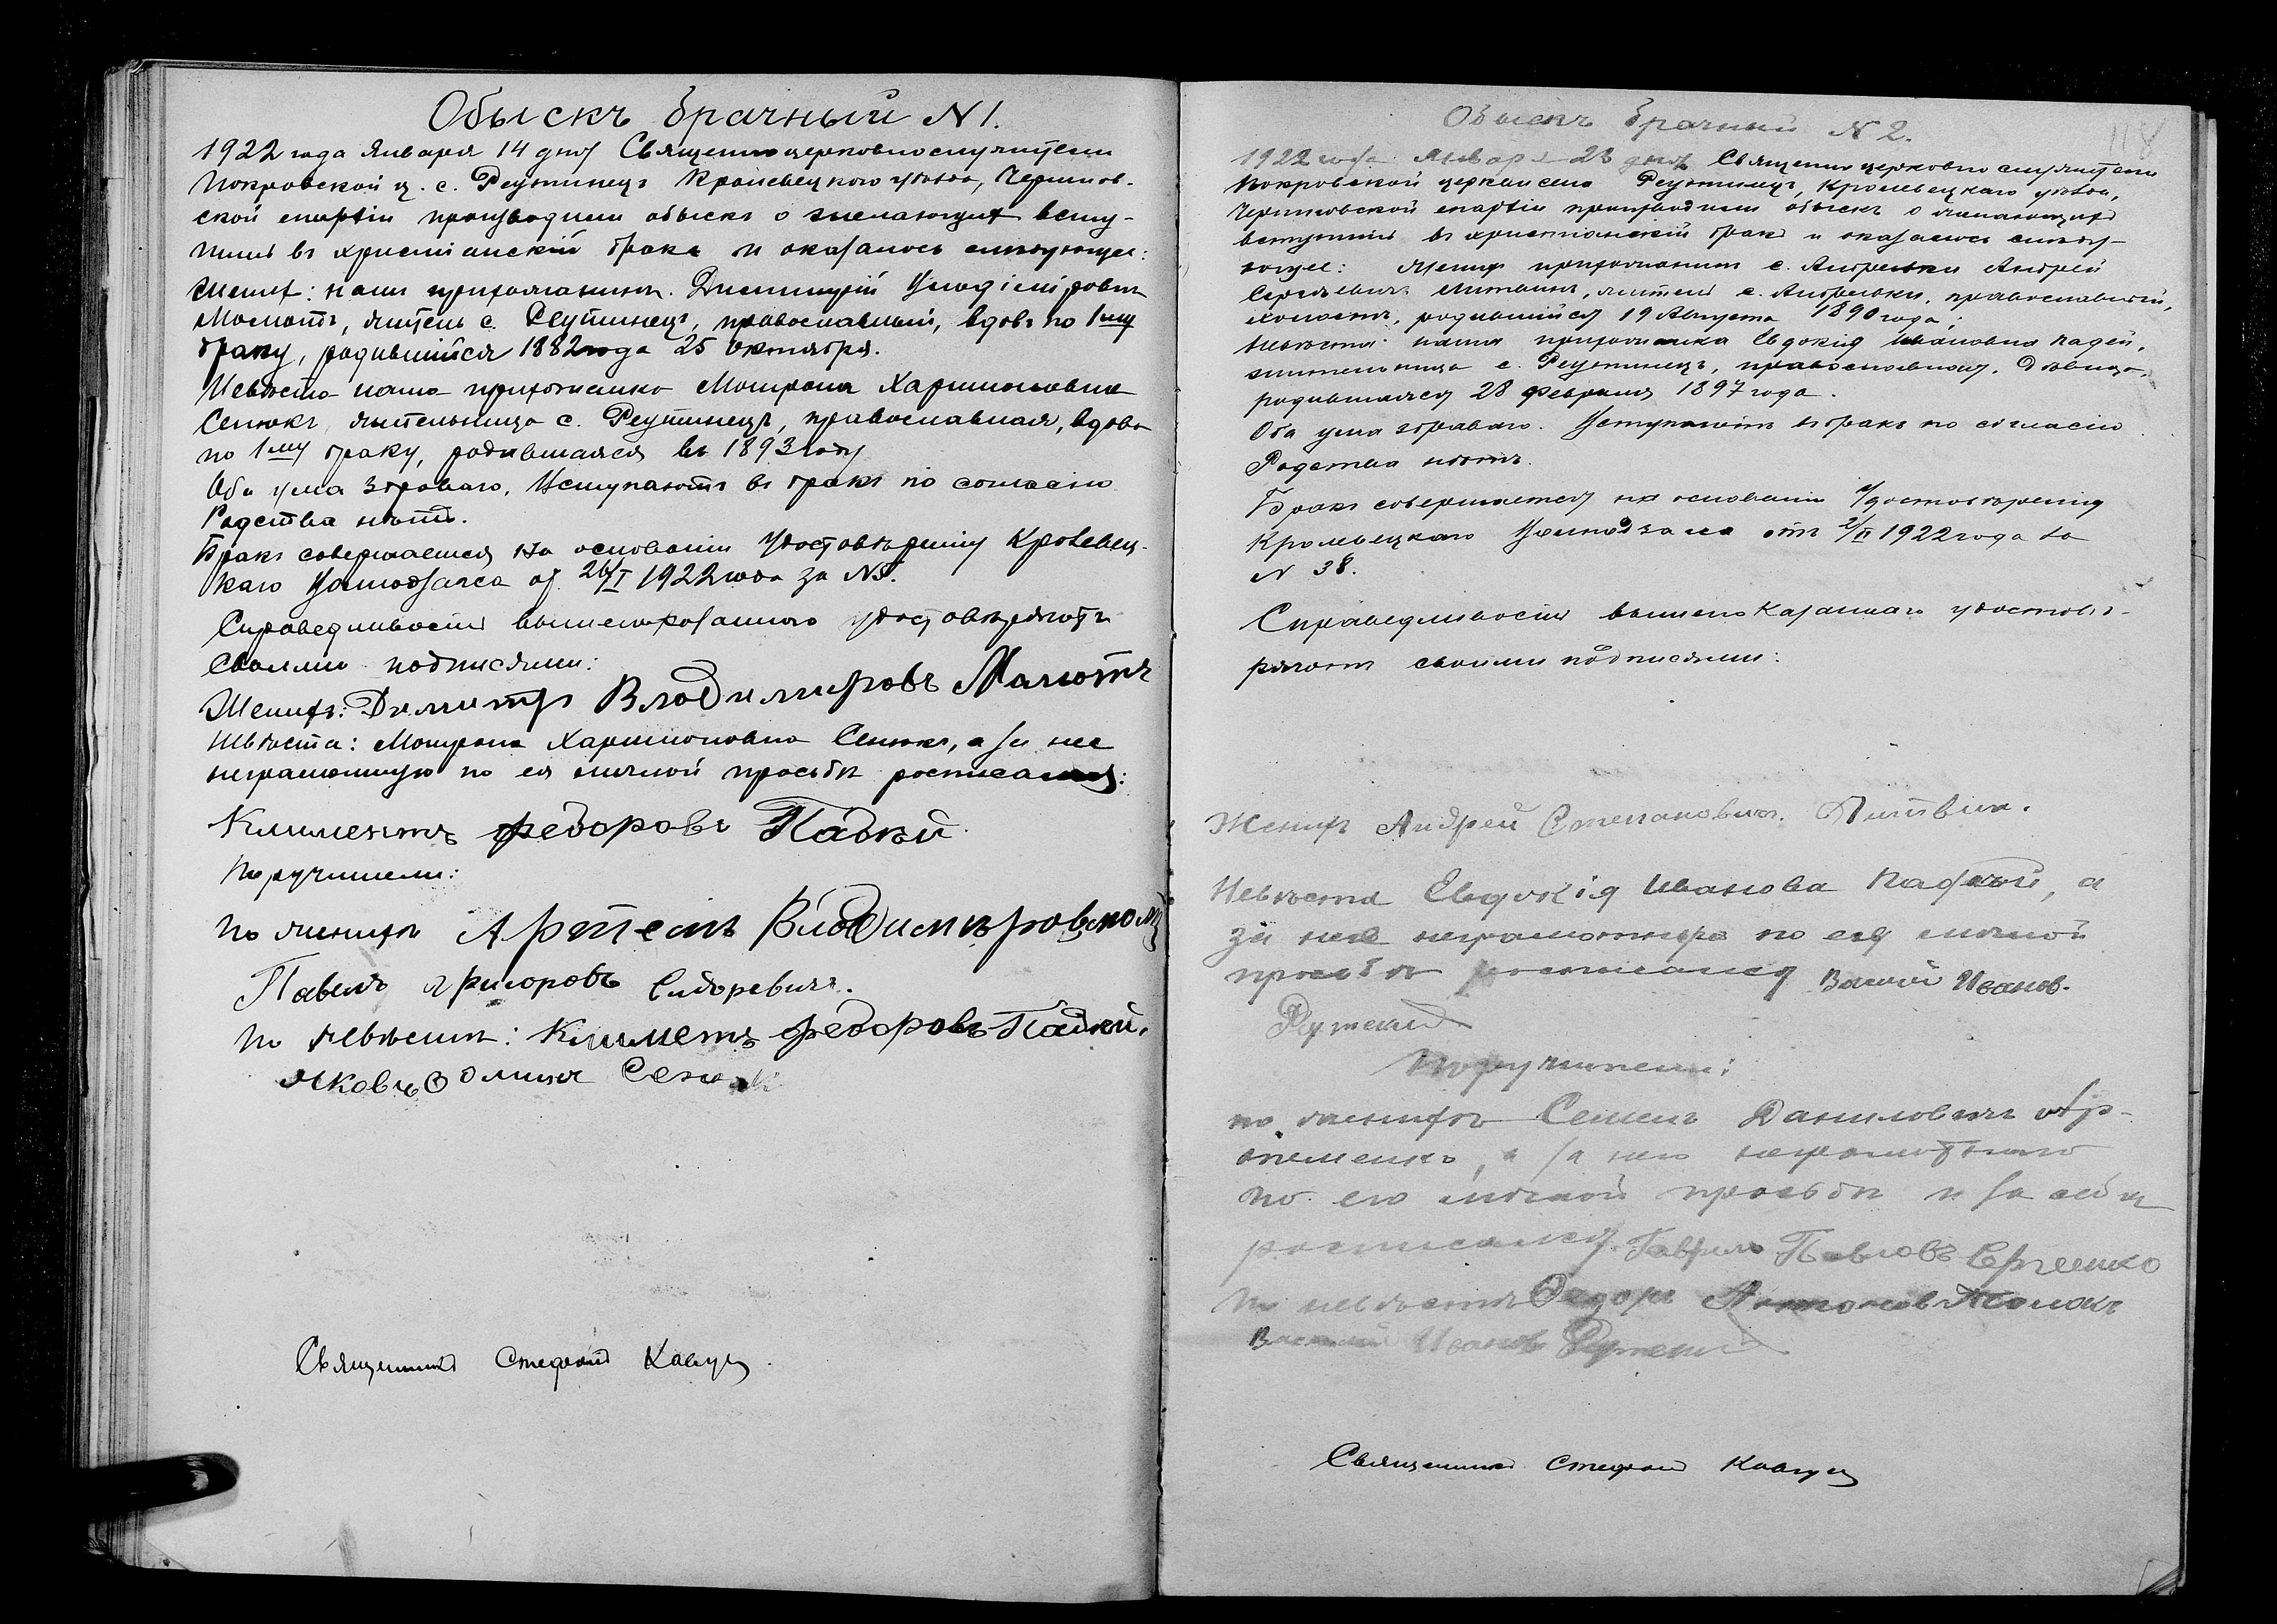 Обыскъ брачный N 1.
1922 года Января 14 дня Священноцерковнослужители
Покровской ц. с. Реутинецъ Кролевецкого уѣзда, Чернигов-
ской епархіи производили обыскъ о желающихъ всту-
пить въ христіанскій бракъ и оказалось слѣдующее:
Женихъ: нашъ прихожанинъ Димитрій
житель с. Реутинецъ, православный, вдовъ по 1му
браку, родившійся 1882 года 25 Октября.
Невѣста наша прихожанка Мотрона Харитоновна
Сенюкъ, жительница с. Реутинецъ, православная, вдова
по 1му браку, родившаяся въ 1893 году
Оба ума здраваго. Вступаютъ въ бракъ по согласію
Родства нѣтъ.
Бракъ совершается на основаніи удостовѣренія Кролевец-
каго 1922 года за N5.
Справедливость вышеуказанного удостовѣряютъ
своими подписями:
Женихъ: Димитръ Владимировъ
Невѣста: Мотрона Харитоновна Сенюкъ, а за нее
неграмотную по ея личной просьбѣ росписался:
Климентъ Федоровъ Падкій
Поручители:
по женихѣ Артемъ
Павелъ Григоровъ Сидоревичъ.
по невѣстѣ: Климетъ Федоровъ Падкій.
Яковъ Сенюк
Священникъ Стефанъ
Обыскъ брачный N 2.
118
1922 года Января 28 дня Священноцерковнослужители
Покровской церкви села Реутинецъ, Кролевецкаго уѣзда,
Черниговской епархіи производили обыскъ о желающихъ
вступить въ христіанскій бракъ и оказалось слѣду-
ющее: Женихъ прихожанинъ с. Андреевки Андрей
Литвинъ, житель с. Андреевки, православный,
холостъ, родившійся 19 Августа 1890 года;
Невѣста: наша прихожанка Евдокія Ивановна
жительница с. Реутинецъ, православная, дѣвица,
родившаяся 28 февраля 1897 года.
Оба ума здраваго. Вступаютъ въ бракъ по согласію
Родства нѣтъ.
Бракъ совершается на основаніи удостовѣренія
Кролевецкаго отъ 2/II 1922 года за
N 38.
Справедливость вышеуказаннаго удостовѣ-
ряютъ своими подписями:
Женихъ Андрей Степановичъ Литвин.
Невѣста Евдокія Иванова а
за нее неграмотную по ея личной
просьбѣ росписался Иванов.
Поручители:
по женихѣ Семенъ Даниловичъ Ар-
теменко, а за него неграмотного
по его личной просьбѣ и за себя
росписался Гаврило Павловъ
по невѣстѣ
Иванов
Священникъ Стефанъ